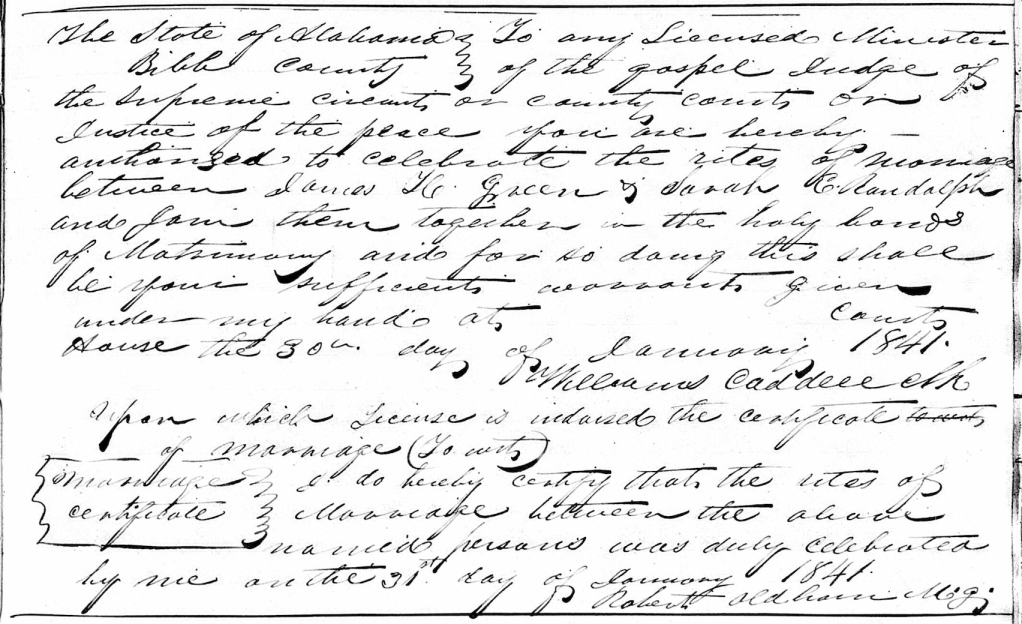 The State of Alabama } To any Licensed Minister
Bibb County } of the gospel Judge of
the supreme circuit or county courts or
Justice of the peace you are hereby —
authorized to celebrate the rites of marriage
between James H. Green & Sarah C Randolph
and Join them together in the holy bonds
of Matrimony and for so doing this shall
be your sufficient warrant given
under my hand at Court
House the 30th. day of January 1841.
William Caddell clk
Upon which License is indorsed the certificate to wit
of marriage (To wit)
Marriage } I do hereby certify that the rites of
certificate } Marriage between the above
named persons was duly celebrated
by me on the 31st day of January 1841.
Robert Oldham